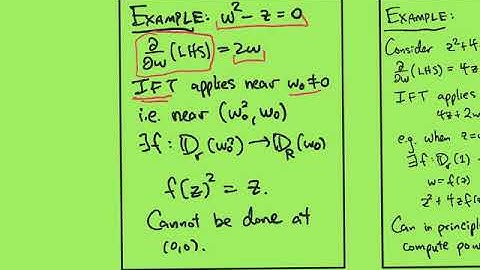 EXAMPLE: w² - z = 0
∂/∂w (LHS) = 2w
IFT applies near w₀ ≠ 0
i.e. near (w₀², w₀)
∃f : 𝔻ᵣ(w₀²) → 𝔻_R(w₀)
f(z)² = z.
Cannot be done at
(0,0).
EXAMPLE:
Consider z² + 4
∂/∂w (LHS) = 4z
IFT applies
4z + 2w
e.g. when z =
∃f : 𝔻ᵣ(1) →
w = f(z)
z² + 4z f(z)
Can in principle
compute pow